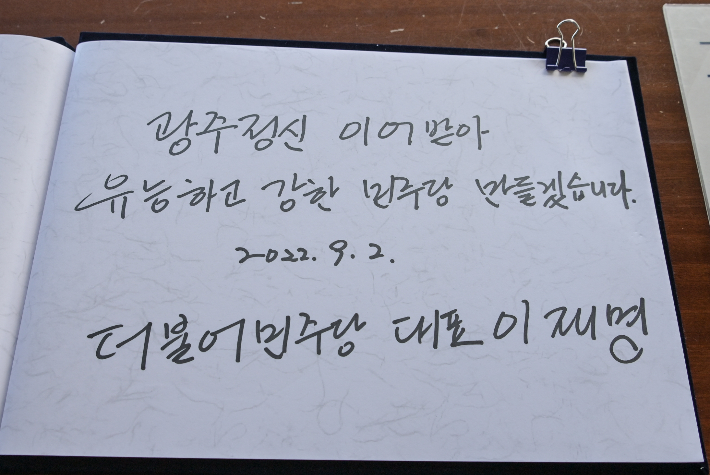 광주정신 이어받아
유능하고 강한 민주당 만들겠습니다.
2022. 9. 2.
더불어민주당 대표 이재명